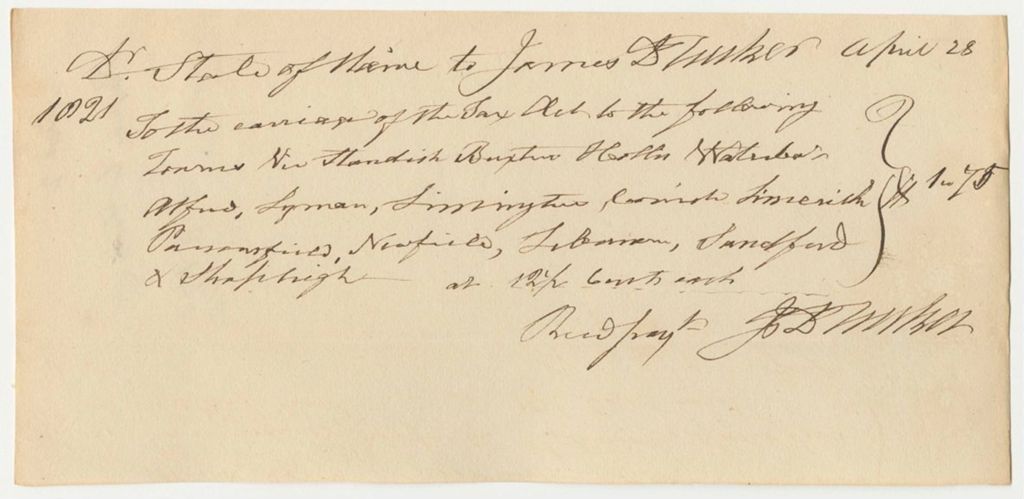 Dr. State of Maine to James D Tucker April 28
1821
To the carriage of the Tax Act to the following
Towns Viz Standish Buxton Hollis Waterboro
Alfred, Lyman, Limington, Cornish Limerick $1..75
Parsonsfield, Newfield, Lebanon, Sandford
& Shapleigh at 12½ Cents each
Recd payt J D Tucker